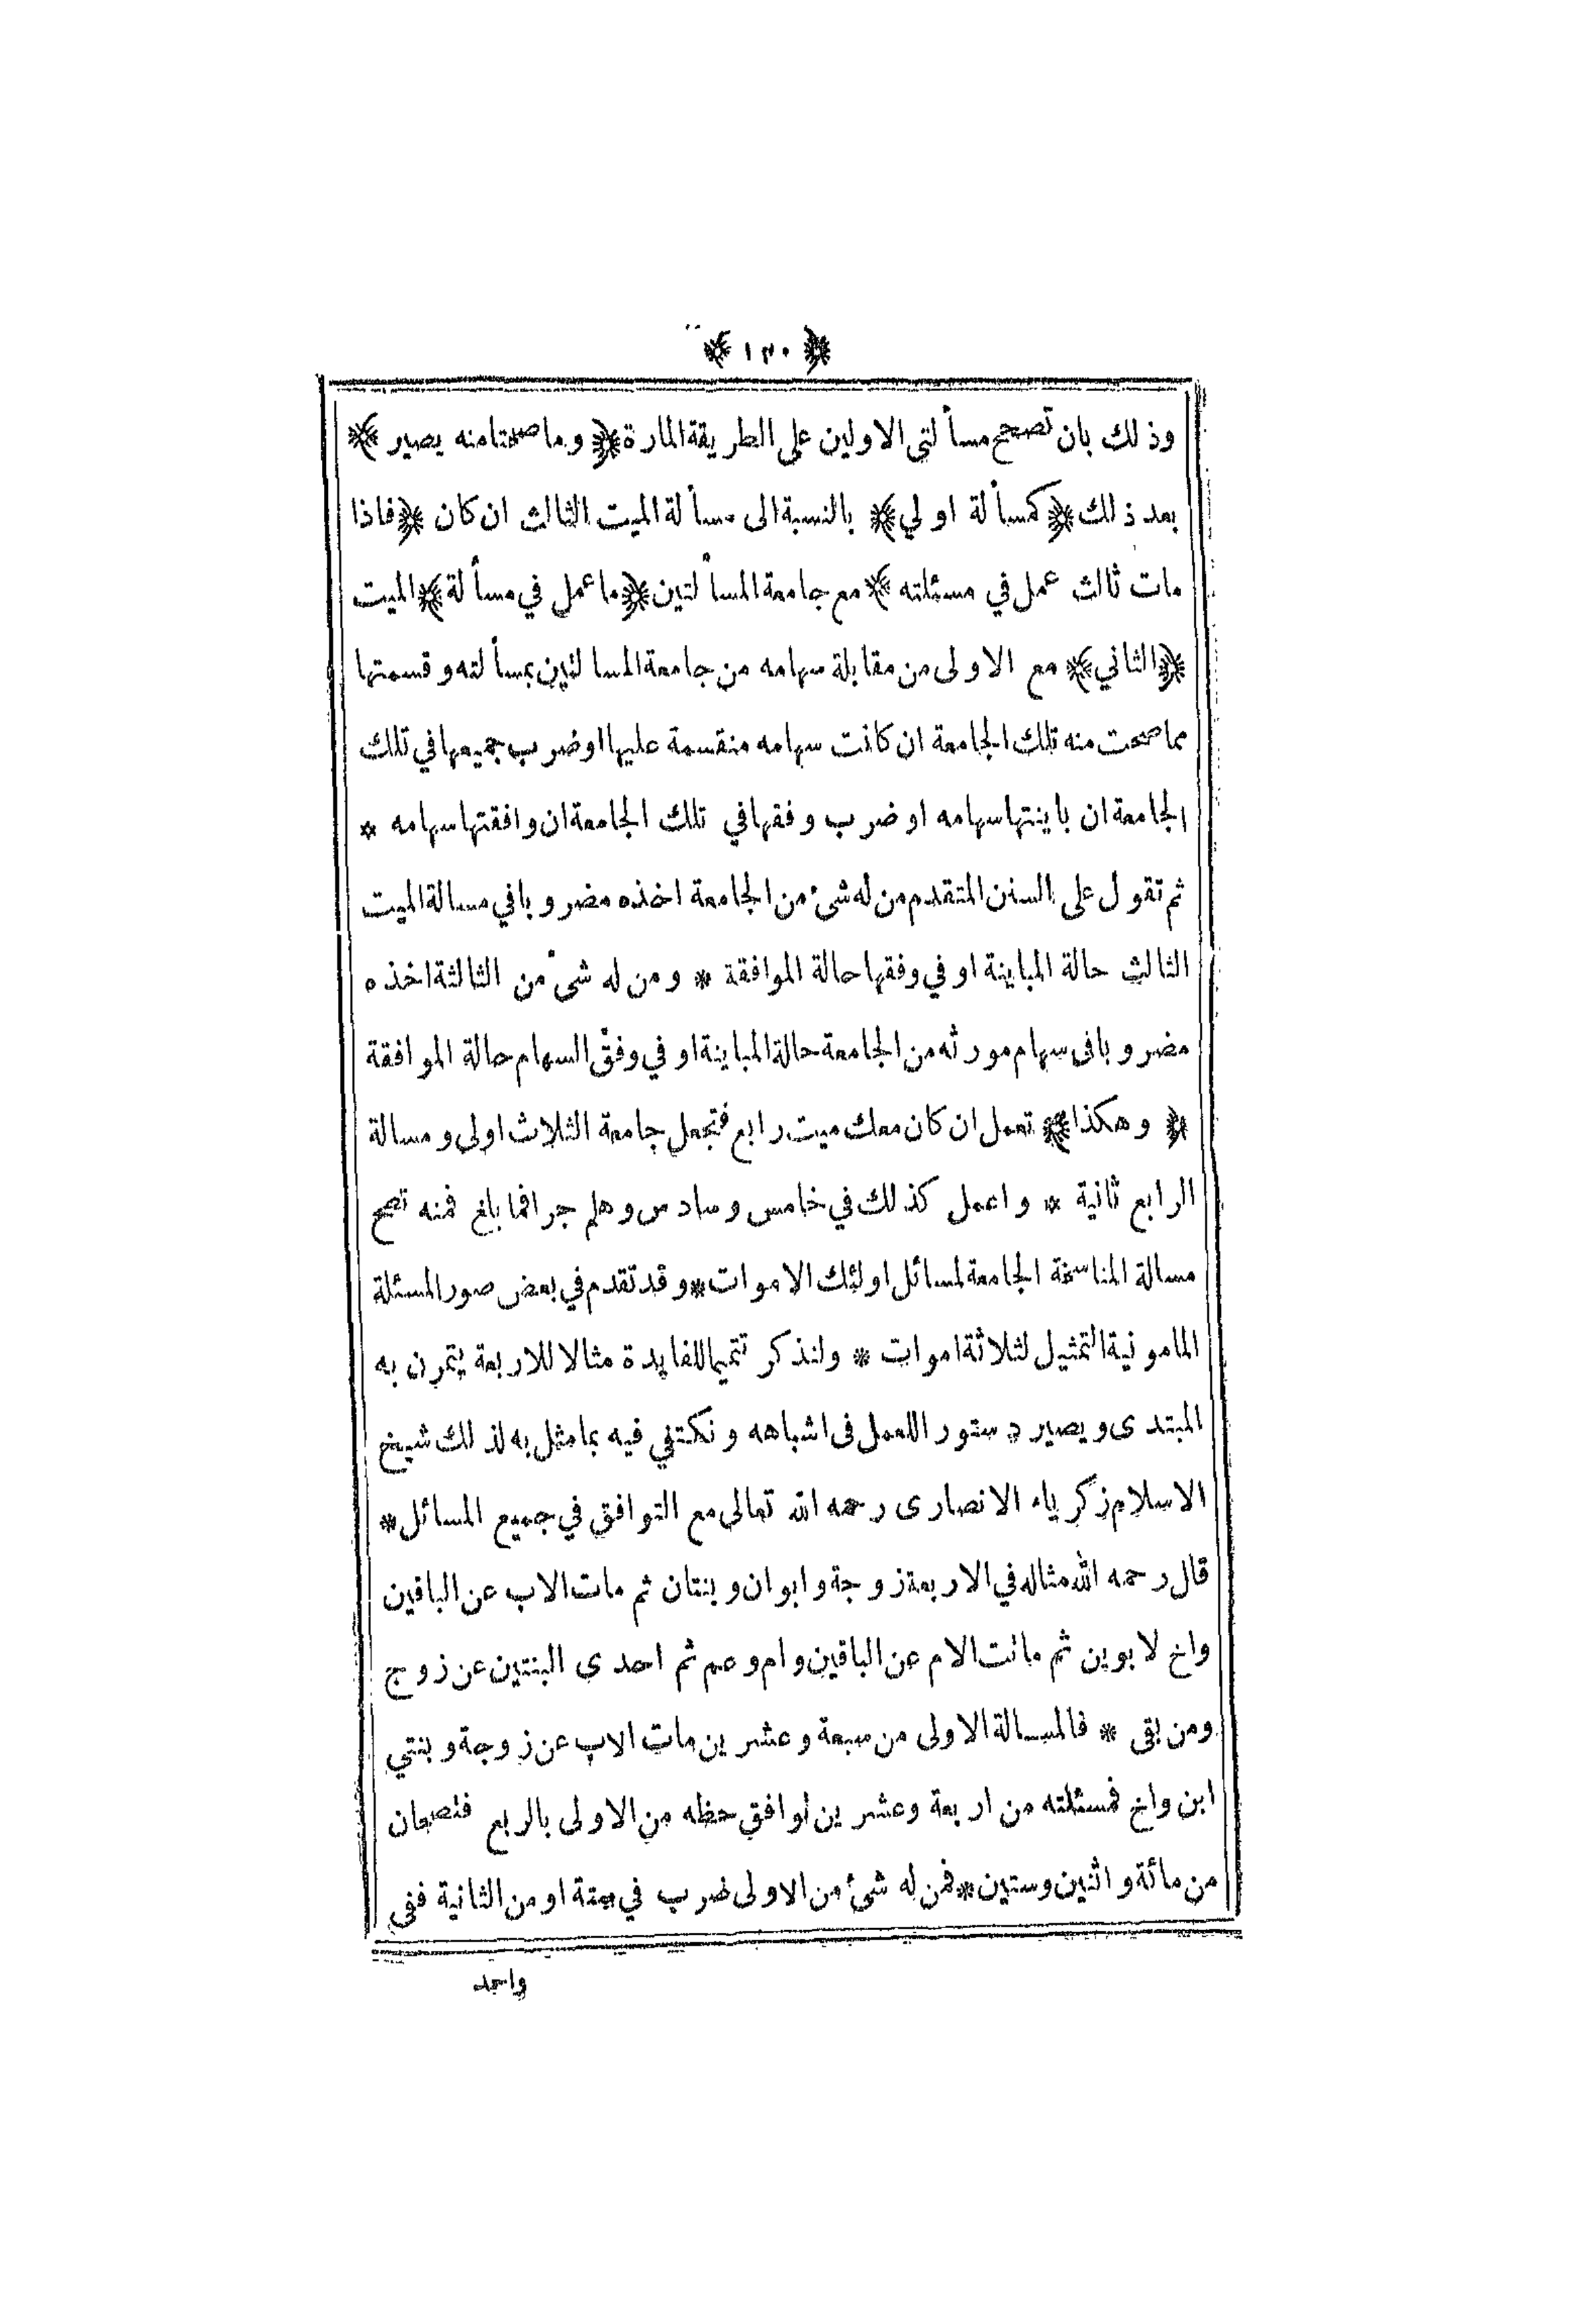 ﴿ ١٣٠ ﴾
وذلك بان تصحح مسألتي الاولين على الطريقة المارة ﴿ وما صحتا منه يصير ﴾
بعد ذلك ﴿ كمسألة اولي ﴾ بالنسبة الى مسألة الميت الثالث ان كان ﴿ فاذا
مات ثالث عمل في مسئلته ﴾ مع جامعة المسألتين ﴿ ما عمل في مسألة ﴾ الميت
﴿ الثاني ﴾ مع الاولى من مقابلة سهامه من جامعة المسالتين بمسألته وقسمتها
مما صحت منه تلك الجامعة ان كانت سهامه منقسمة عليها او ضرب جميعها في تلك
الجامعة ان باينتها سهامه او ضرب وفقها في تلك الجامعة ان وافقتها سهامه *
ثم تقول على السنن المتقدم من له شئ من الجامعة اخذه مضروبا في مسالة الميت
الثالث حالة المباينة او في وفقها حالة الموافقة * ومن له شئ من الثالثة اخذه
مضروبا فى سهام مورثه من الجامعة حالة المباينة او في وفق السهام حالة الموافقة
﴿ وهكذا ﴾ تعمل ان كان معك ميت رابع فتجعل جامعة الثلاث اولى ومسالة
الرابع ثانية * واعمل كذلك في خامس وسادس وهلم جرا فما بلغ فمنه تصح
مسالة المناسخة الجامعة لمسائل اولئك الاموات * وقد تقدم في بعض صور المسئلة
المامونية التمثيل لثلاثة اموات * ولنذكر تتميما للفايدة مثالا للاربعة يتمرن به
المبتدى ويصير دستور اللعمل فى اشباهه ونكتفي فيه بما مثل به لذلك شيخ
الاسلام زكرياء الانصارى رحمه الله تعالى مع التوافق في جميع المسائل *
قال رحمه الله مثاله في الاربعة زوجة وابوان وبنتان ثم مات الاب عن الباقين
واخ لابوين ثم ماتت الام عن الباقين وام وعم ثم احدى البنتين عن زوج
ومن بقى * فالمسالة الاولى من سبعة وعشرين مات الاب عن زوجة وبنتي
ابن واخ فمسئلته من اربعة وعشرين توافق حظه من الاولى بالربع فتصحان
من مائة واثنين وستين * فمن له شئ من الاولى ضرب في ستة او من الثانية ففى
واحد